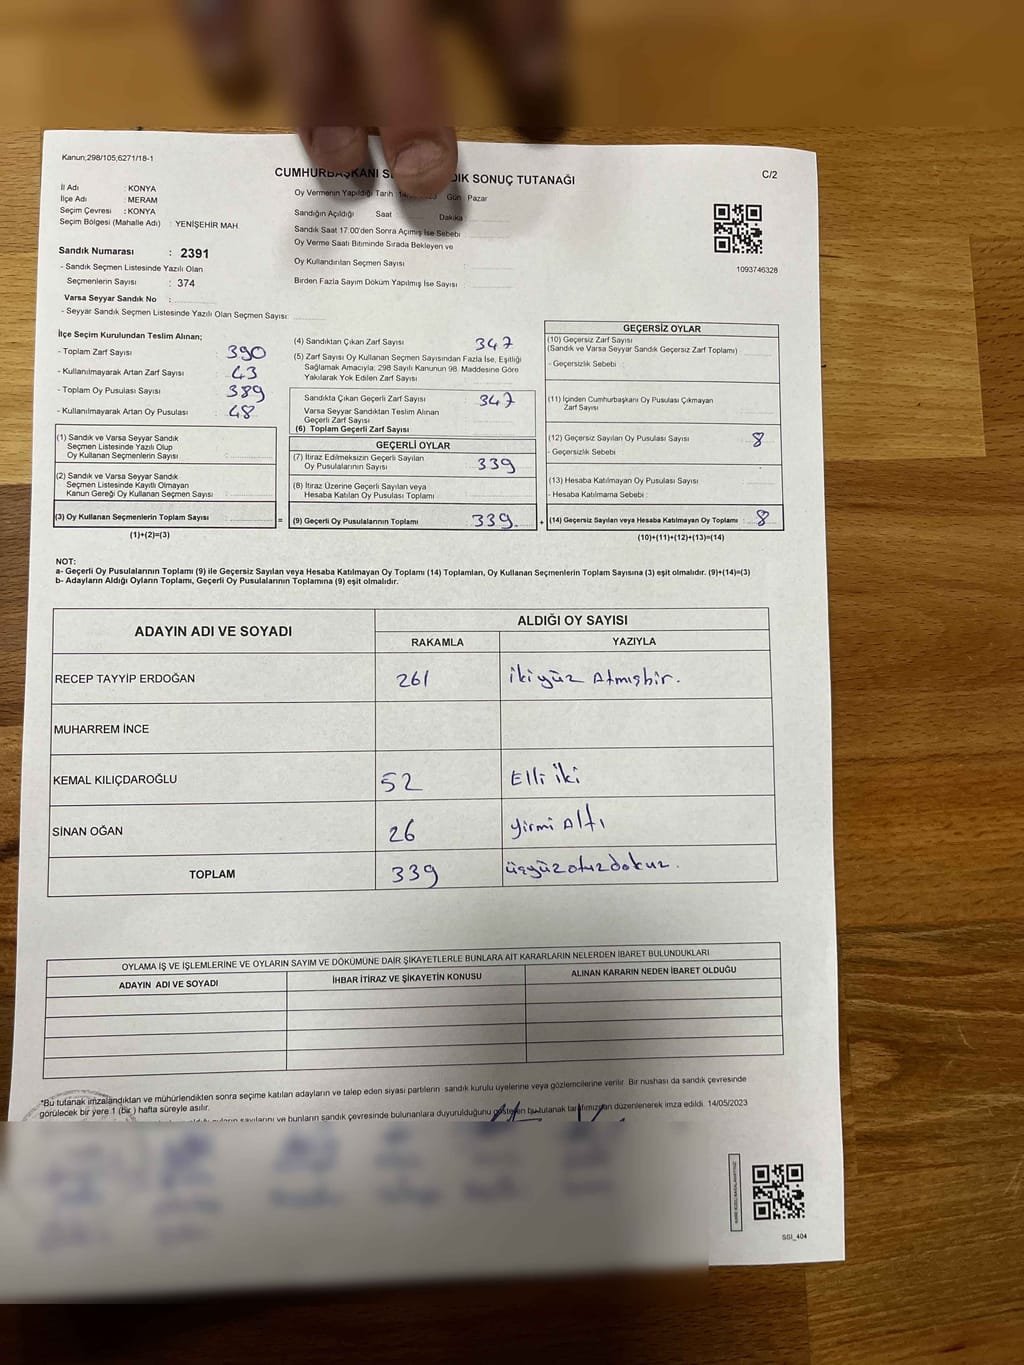 Kanun;298/105,6271/18-1
CUMHURBAŞKANI SONUÇ TUTANAĞI
C/2
İl Adı : KONYA
İlçe Adı : MERAM
Seçim Çevresi : KONYA
Seçim Bölgesi (Mahalle Adı) : YENİŞEHİR MAH.
Oy Vermenin Yapıldığı Tarih Gün Pazar
Sandığın Açıldığı Saat Dakika
Sandık Saat 17:00'den Sonra Açılmış İse Sebebi
Oy Verme Saati Bitiminde Sırada Bekleyen ve
Oy Kullandırılan Seçmen Sayısı :
Birden Fazla Sayım Döküm Yapılmış İse Sayısı :
1093746328
Sandık Numarası : 2391
- Sandık Seçmen Listesinde Yazılı Olan
Seçmenlerin Sayısı : 374
Varsa Seyyar Sandık No :
- Seyyar Sandık Seçmen Listesinde Yazılı Olan Seçmen Sayısı:
İlçe Seçim Kurulundan Teslim Alınan;
- Toplam Zarf Sayısı : 390
- Kullanılmayarak Artan Zarf Sayısı : 43
- Toplam Oy Pusulası Sayısı : 389
- Kullanılmayarak Artan Oy Pusulası : 48
(1) Sandık ve Varsa Seyyar Sandık
Seçmen Listesinde Yazılı Olup
Oy Kullanan Seçmenlerin Sayısı :
(2) Sandık ve Varsa Seyyar Sandık
Seçmen Listesinde Kayıtlı Olmayan
Kanun Gereği Oy Kullanan Seçmen Sayısı :
(3) Oy Kullanan Seçmenlerin Toplam Sayısı :
(1)+(2)=(3)
=
(4) Sandıktan Çıkan Zarf Sayısı 347
(5) Zarf Sayısı Oy Kullanan Seçmen Sayısından Fazla İse, Eşitliği
Sağlamak Amacıyla; 298 Sayılı Kanunun 98. Maddesine Göre
Yakılarak Yok Edilen Zarf Sayısı
Sandıkta Çıkan Geçerli Zarf Sayısı 347
Varsa Seyyar Sandıktan Teslim Alınan
Geçerli Zarf Sayısı
(6) Toplam Geçerli Zarf Sayısı
GEÇERLİ OYLAR
(7) İtiraz Edilmeksizin Geçerli Sayılan
Oy Pusulalarının Sayısı 339
(8) İtiraz Üzerine Geçerli Sayılan veya
Hesaba Katılan Oy Pusulası Toplamı
(9) Geçerli Oy Pusulalarının Toplamı 339
+
GEÇERSİZ OYLAR
(10) Geçersiz Zarf Sayısı
(Sandık ve Varsa Seyyar Sandık Geçersiz Zarf Toplamı)
- Geçersizlik Sebebi :
(11) İçinden Cumhurbaşkanı Oy Pusulası Çıkmayan
Zarf Sayısı
(12) Geçersiz Sayılan Oy Pusulası Sayısı 8
- Geçersizlik Sebebi
(13) Hesaba Katılmayan Oy Pusulası Sayısı
- Hesaba Katılmama Sebebi :
(14) Geçersiz Sayılan veya Hesaba Katılmayan Oy Toplamı : 8
(10)+(11)+(12)+(13)=(14)
NOT:
a- Geçerli Oy Pusulalarının Toplamı (9) ile Geçersiz Sayılan veya Hesaba Katılmayan Oy Toplamı (14) Toplamları, Oy Kullanan Seçmenlerin Toplam Sayısına (3) eşit olmalıdır. (9)+(14)=(3)
b- Adayların Aldığı Oyların Toplamı, Geçerli Oy Pusulalarının Toplamına (9) eşit olmalıdır.
ADAYIN ADI VE SOYADI
ALDIĞI OY SAYISI
RAKAMLA YAZIYLA
RECEP TAYYİP ERDOĞAN 261 ikiyüz Atmışbir.
MUHARREM İNCE
KEMAL KILIÇDAROĞLU 52 Elli iki
SİNAN OĞAN 26 yirmi Altı
TOPLAM 339 üçyüzotuzdokuz.
OYLAMA İŞ VE İŞLEMLERİNE VE OYLARIN SAYIM VE DÖKÜMÜNE DAİR ŞİKAYETLERLE BUNLARA AİT KARARLARIN NELERDEN İBARET BULUNDUKLARI
ADAYIN ADI VE SOYADI İHBAR İTİRAZ VE ŞİKAYETİN KONUSU ALINAN KARARIN NEDEN İBARET OLDUĞU
*Bu tutanak imzalandıktan ve mühürlendikten sonra seçime katılan adayların ve talep eden siyasi partilerin sandık kurulu üyelerine veya gözlemcilerine verilir. Bir nüshası da sandık çevresinde
görülecek bir yere 1 (bir ) hafta süreyle asılır.
sayılarını ve bunların sandık çevresinde bulunanlara duyurulduğunu gösteren bu tutanak tarafımızdan düzenlenerek imza edildi. 14/05/2023
SSI_404